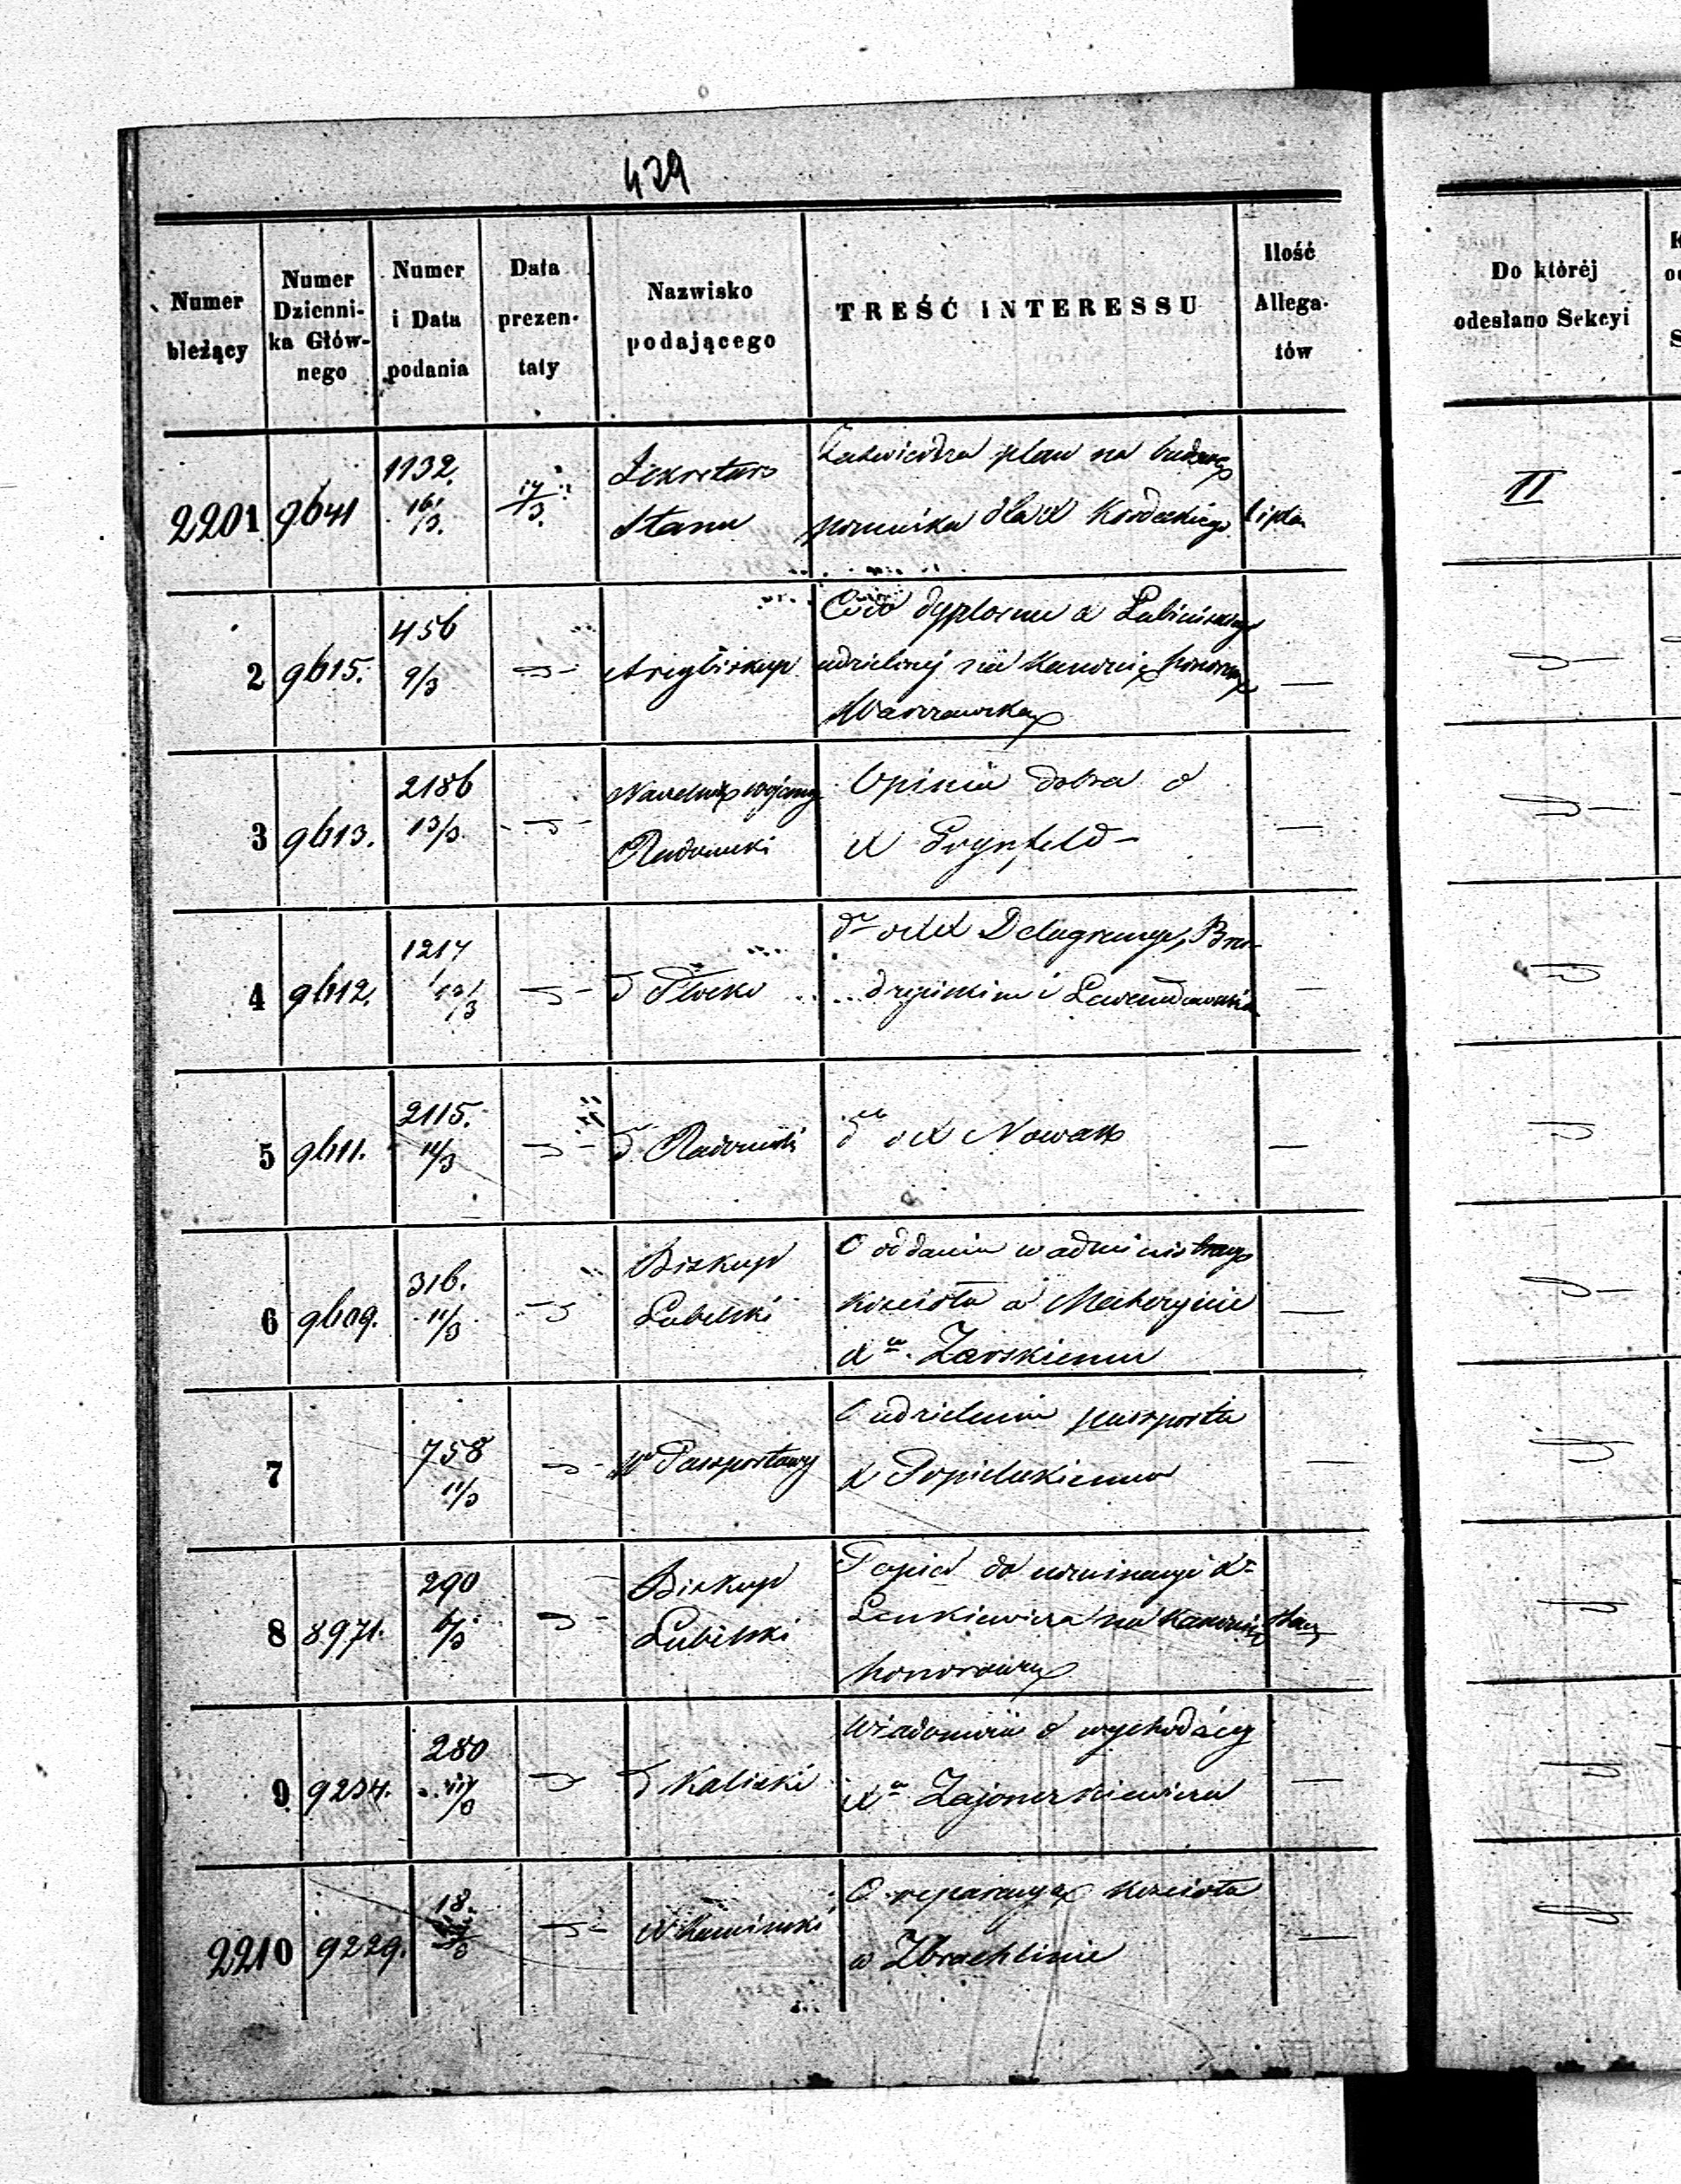 429
Numer bieżący
Numer Dzienni- ka Głów- nego
Numer i Data podania
Data prezen- taty
Nazwisko podającego
TREŚĆ INTERESSU
Ilość Allega- tów
Do któréj odesłano Sekcyi
2201 9641 1132. 16/3. 17/3. Sekretarz Stanu
Zatwierdza plan na budowę
pomnika dla X Kordeckiego
II
2 9615. 456 9/3 Arcybiskup
dyplomu X Łubieńskiego
udzielonej na Kanonię honorową
Warszawską
3 9613. 2186 13/3. Naczelnik wojenny Radomski
Opinia dobra o
X Grynfeld
4 9612. 1217 12/3 d Płocki
dto o XX
i Lewandowskim
5 9611. 2115. 11/3 dto Radomski
dto o X Nowak
6 9609. 316. 11/3 Biskup Lubelski
O oddaniu w administracyę
Kościoła w
Xu. Żarskiemu
7 758 11/3 W Paszportowy
O udzieleniu paszportu
X Popieluskiemu
8 8971. 290 6/3 Biskup Lubelski
do nominacyi X
Lenkiewicza na Kanonię
honorową
9 9234. 280 d Kaliski
Wiadomość o wychodźcy
Xu Zajonczkiewiczu
2210 9229. 18. X Kamiński
O reparacyę Kościoła
w Zbrachlinie